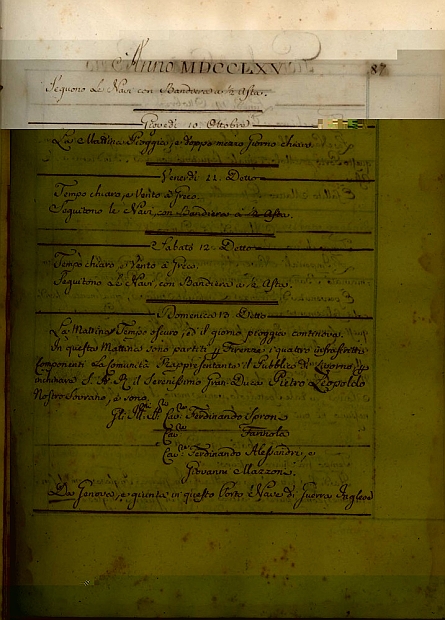 Anno MDCCLXV
87
Seguono Le Navi con Bandiera a ½ Asta.
Giovedì 10 Ottobre
La Mattina Pioggia, e doppo mezzo Giorno chiaro
Venerdì 11. Detto
Tempo chiaro, e Vento a Greco.
Seguitono le Navi, con Bandiera a ½ Asta.
Sabato 12. Detto
Tempo chiaro, e Vento a Greco.
Seguitono Le Navi, con Bandiera a ½ Asta.
Domenica 13 Detto
La Mattina Tempo oscuro, ed il giorno pioggia continova.
In questa Mattina sono partiti Firenze i quattro infrascritti
Componenti La Comunità Rappresentante il Pubblico di Livorno
inchinare S. A. R. il Serenissimo Gran Duca Pietro Leopoldo
Nostro Sovrano, e sono
Gli Ferdinando Sproni
Cav.
Cav. Ferdinando Alessandri, e
Giovanni Mazzoni.
Da Genova, e giunta in questo Porto Nave di Guerra Inglese